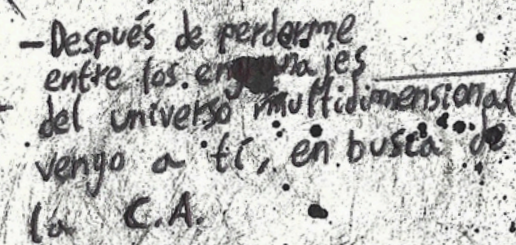 -Después de perderme
entre los engranajes
del universo multidimensional
vengo a tí, en busca de
la C.A.